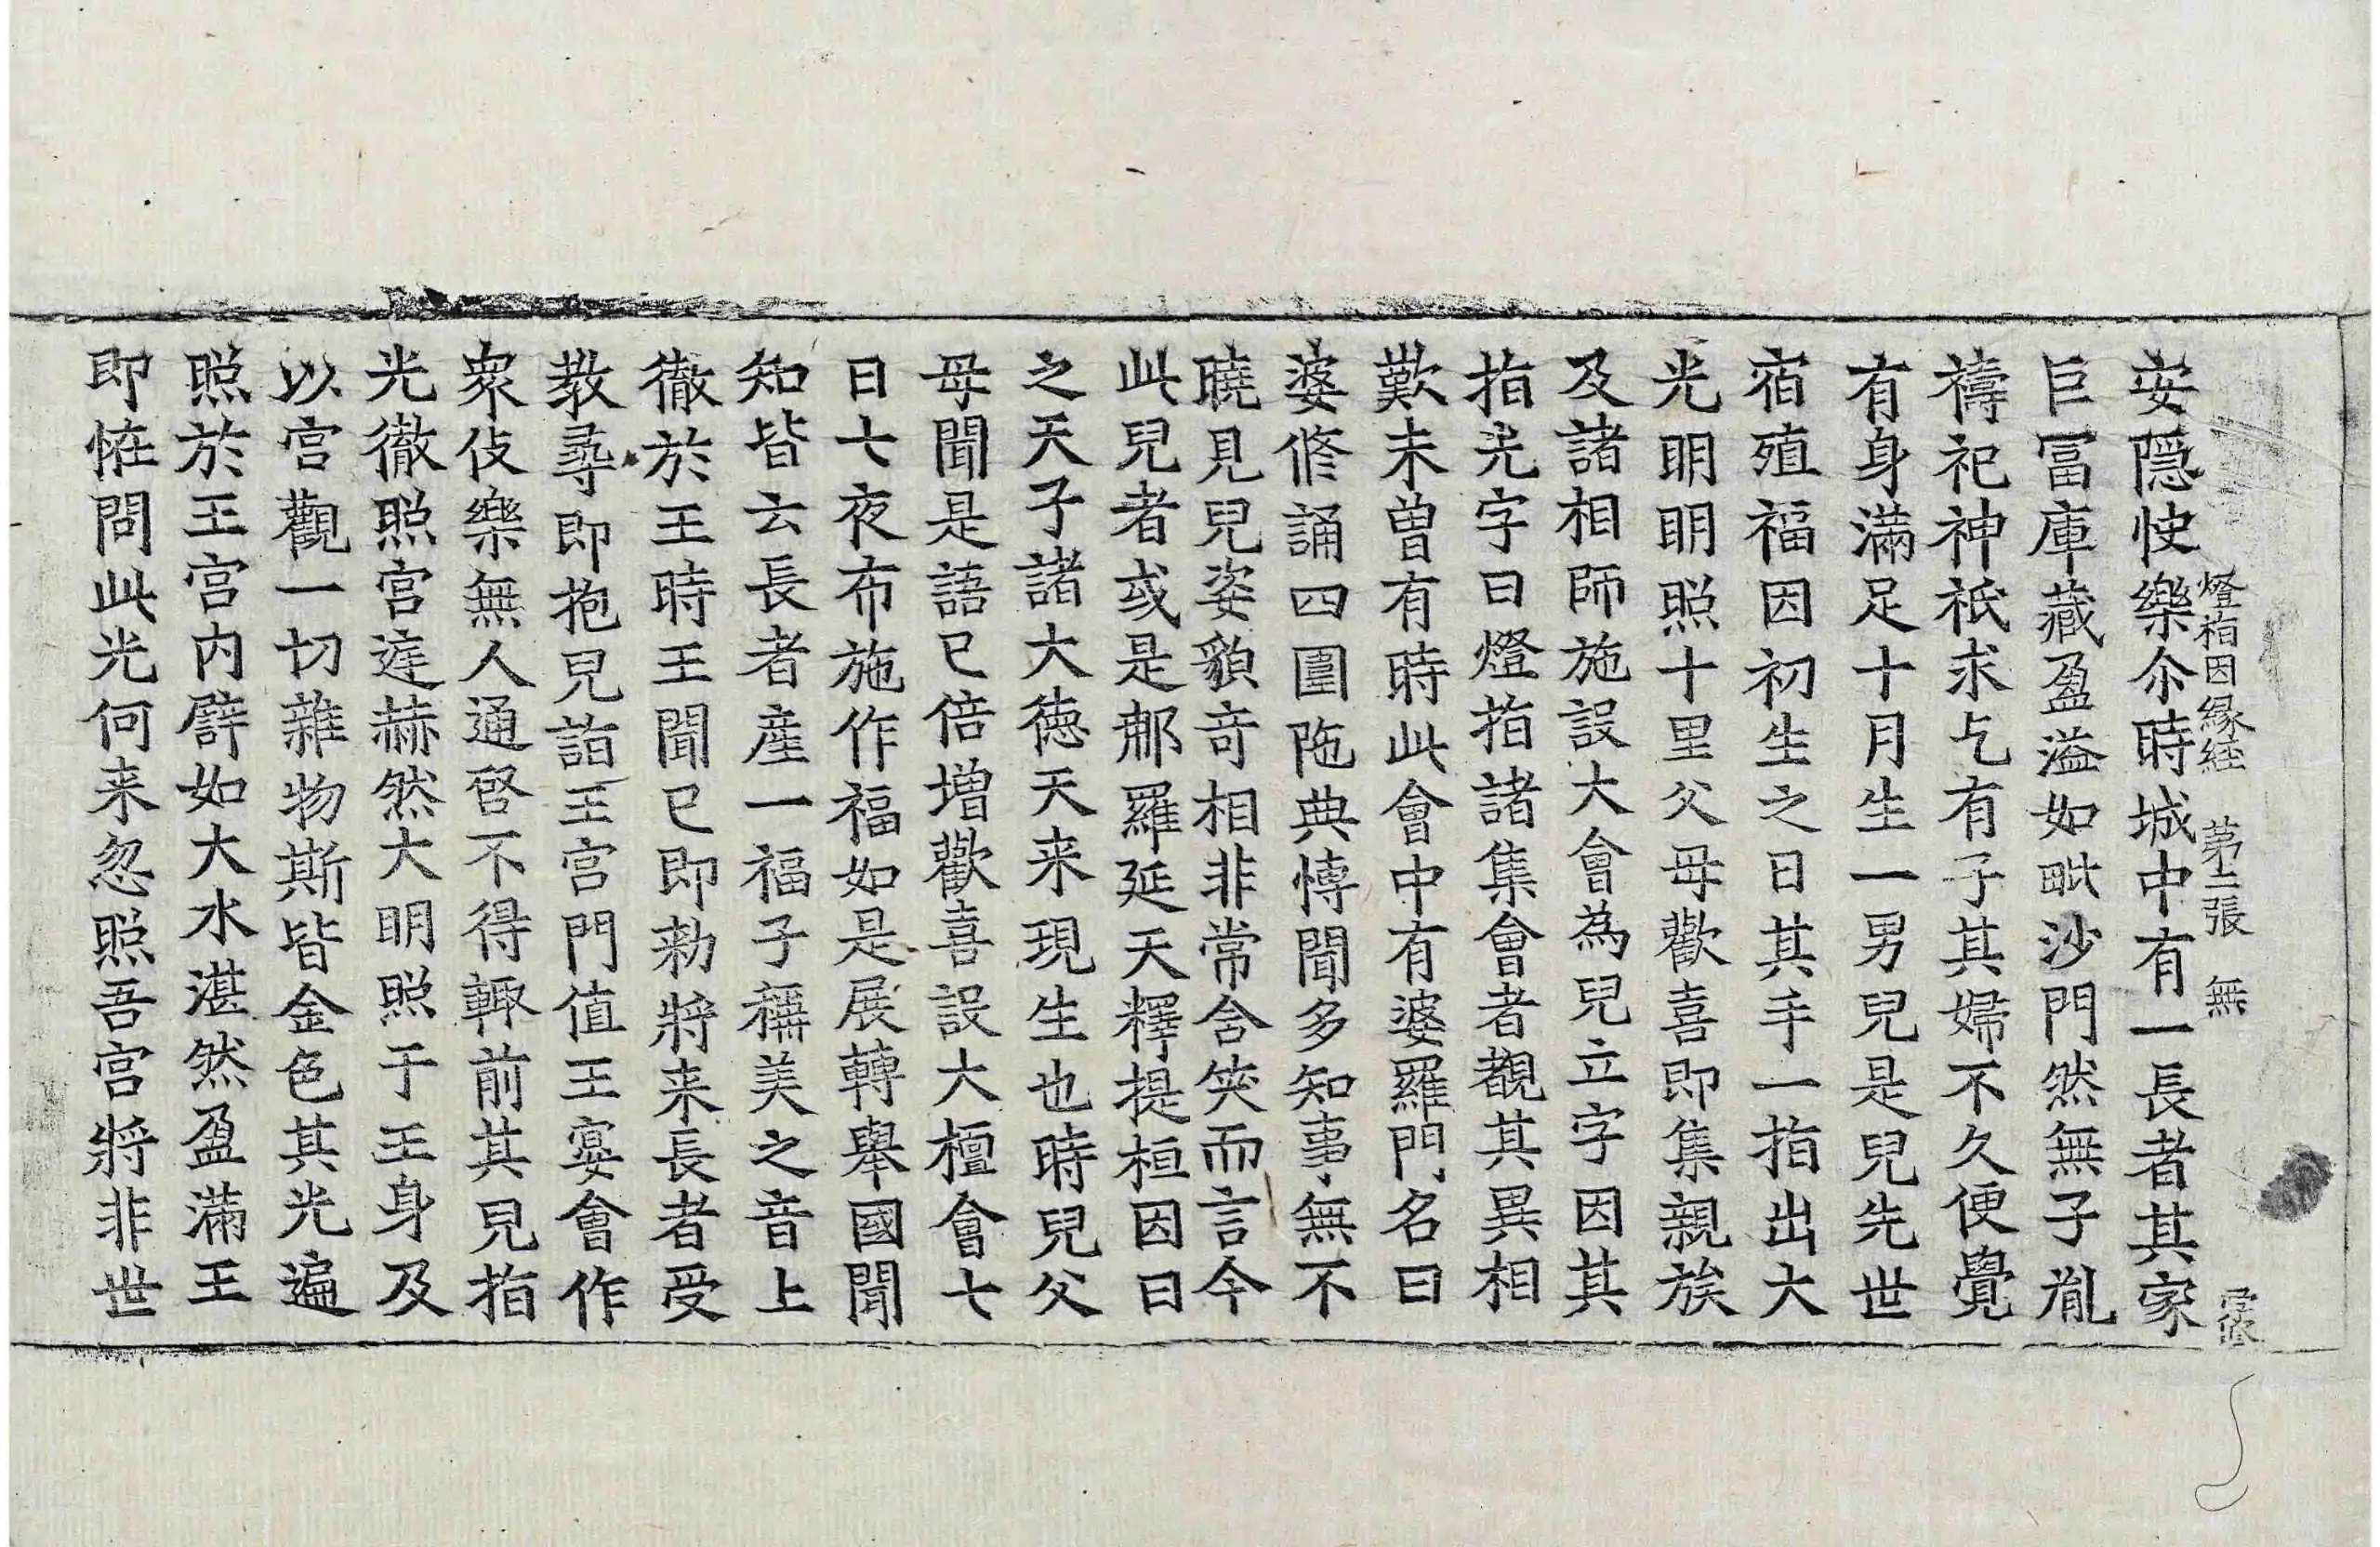 燈指因縁経 第二張 無
安隠快樂尒時城中有一長者其家
巨冨庫藏盈溢如毗沙門然無子胤
禱祀神祇求乞有子其婦不久便覺
有身滿足十月生一男兒是兒先世
宿殖福因初生之日其手一指出大
光明明照十里父母歡喜即集親族
及諸相師施設大會為兒立字因其
指光字曰燈指諸集會者覩其異相
歎未曾有時此會中有婆羅門名曰
婆修誦四圍陁典愽聞多知事無不
曉見兒姿貌竒相非常含笑而言今
此兒者或是那羅延天釋提桓因日
之天子諸大德天来現生也時兒父
母聞是語已倍增歡喜設大檀會七
日七夜布施作福如是展轉舉國聞
知皆云長者産一福子稱美之音上
徹於王時王聞已即勑將来長者受
教尋即抱兒詣王宫門值王宴會作
衆伎樂無人通啓不得輙前其兒指
光徹照宫逹赫然大明照于王身及
以宫觀一切雜物斯皆金色其光遍
照於王宫内譬如大水湛然盈滿王
即恠問此光何来忽照吾宫將非世